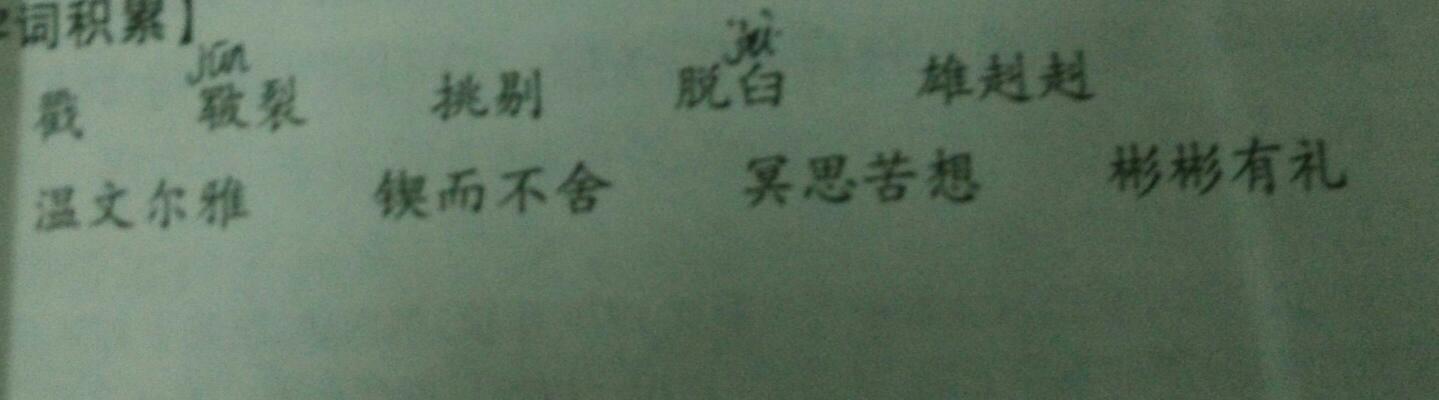 词积累】
jūn jiù
戳 皲裂 挑剔 脱臼 雄赳赳
温文尔雅 锲而不舍 冥思苦想 彬彬有礼